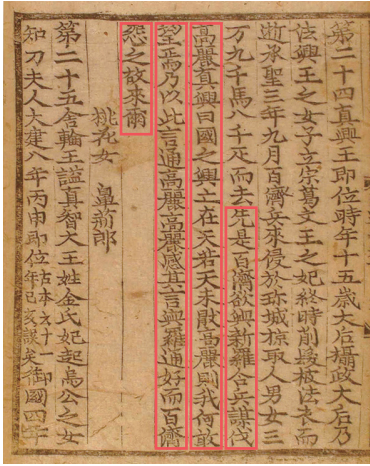 第二十四真興王即位時年十五歲大后攝政大后乃
法興王之女子立宗葛文王之妃終時削髮被法衣而
逝承聖三年九月百濟兵來侵於珍城掠取人男女三
万九千馬八千疋而去先是百濟欲與新羅合兵謀伐
高麗真興曰國之興亡在天若天未猒高麗則我何敢
望焉乃以此言通高麗高麗感其言與羅通好而百濟
怨之故來爾
桃花女 鼻荊郎
第二十五舍輪王諡真智大王姓金氏妃起烏公之女
知刀夫人大建八年丙申即位古本云十一年己亥誤矣御國四年